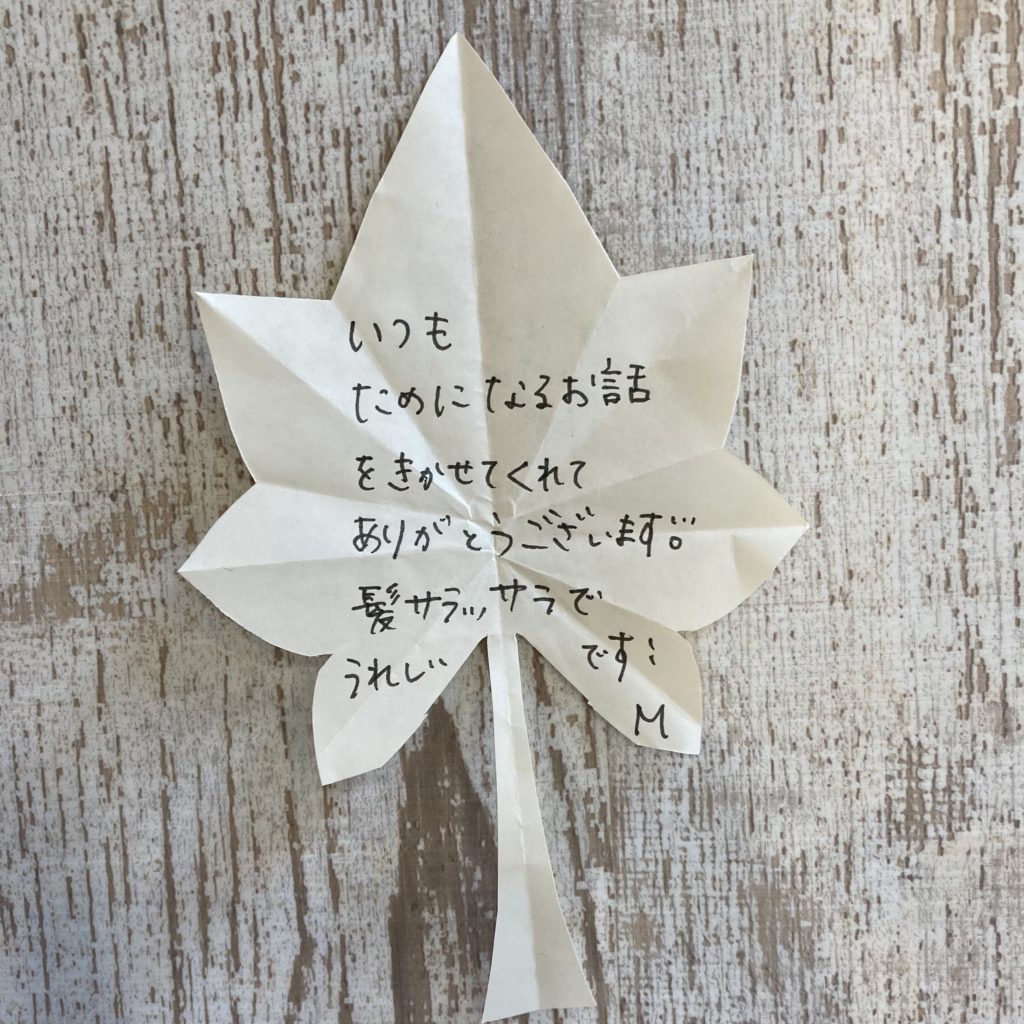 いつも
ためになるお話
をきかせてくれて
ありがとうございます!!
髪サラッサラで
うれしい です!
M